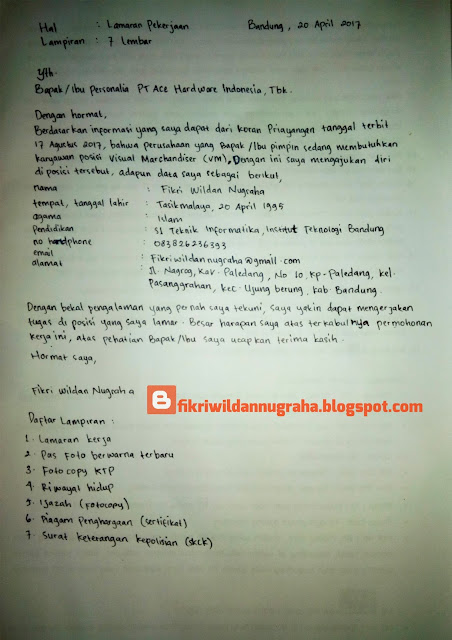 Hal : Lamaran Pekerjaan Bandung, 20 April 2017
Lampiran : 7 Lembar
Yth.
Bapak/Ibu Personalia PT Ace Hardware Indonesia, Tbk.
Dengan hormat,
Berdasarkan informasi yang saya dapat dari koran Priayangan tanggal terbit
17 Agustus 2017, bahwa perusahaan yang Bapak/Ibu pimpin sedang membutuhkan
karyawan posisi Visual Marchandiser (VM), Dengan ini saya mengajukan diri
di posisi tersebut, adapun data saya sebagai berikut,
nama : Fikri Wildan Nugraha
tempat, tanggal lahir : Tasikmalaya, 20 April 1995
agama : Islam
Pendidikan : S1 Teknik Informatika, Institut Teknologi Bandung
no handphone : 083826236393
email : Fikriwildannugraha@gmail.com
alamat : Jl. Nagrog, Kav. Paledang, No 10, Kp. Paledang, kel.
Pasanggrahan, kec. Ujung berung, kab. Bandung.
Dengan bekal pengalaman yang pernah saya tekuni, saya yakin dapat mengerjakan
tugas di posisi yang saya lamar. Besar harapan saya atas terkabulnya permohonan
kerja ini, atas pehatian Bapak/Ibu saya ucapkan terima kasih.
Hormat saya,
Fikri Wildan Nugraha
fikriwildannugraha.blogspot.com
Daftar Lampiran :
1. Lamaran kerja
2. Pas Foto berwarna terbaru
3. Fotocopy KTP
4. Riwayat hidup
5. Ijazah (fotocopy)
6. Piagam Penghargaan (sertifikat)
7. Surat keterangan kepolisian (skck)